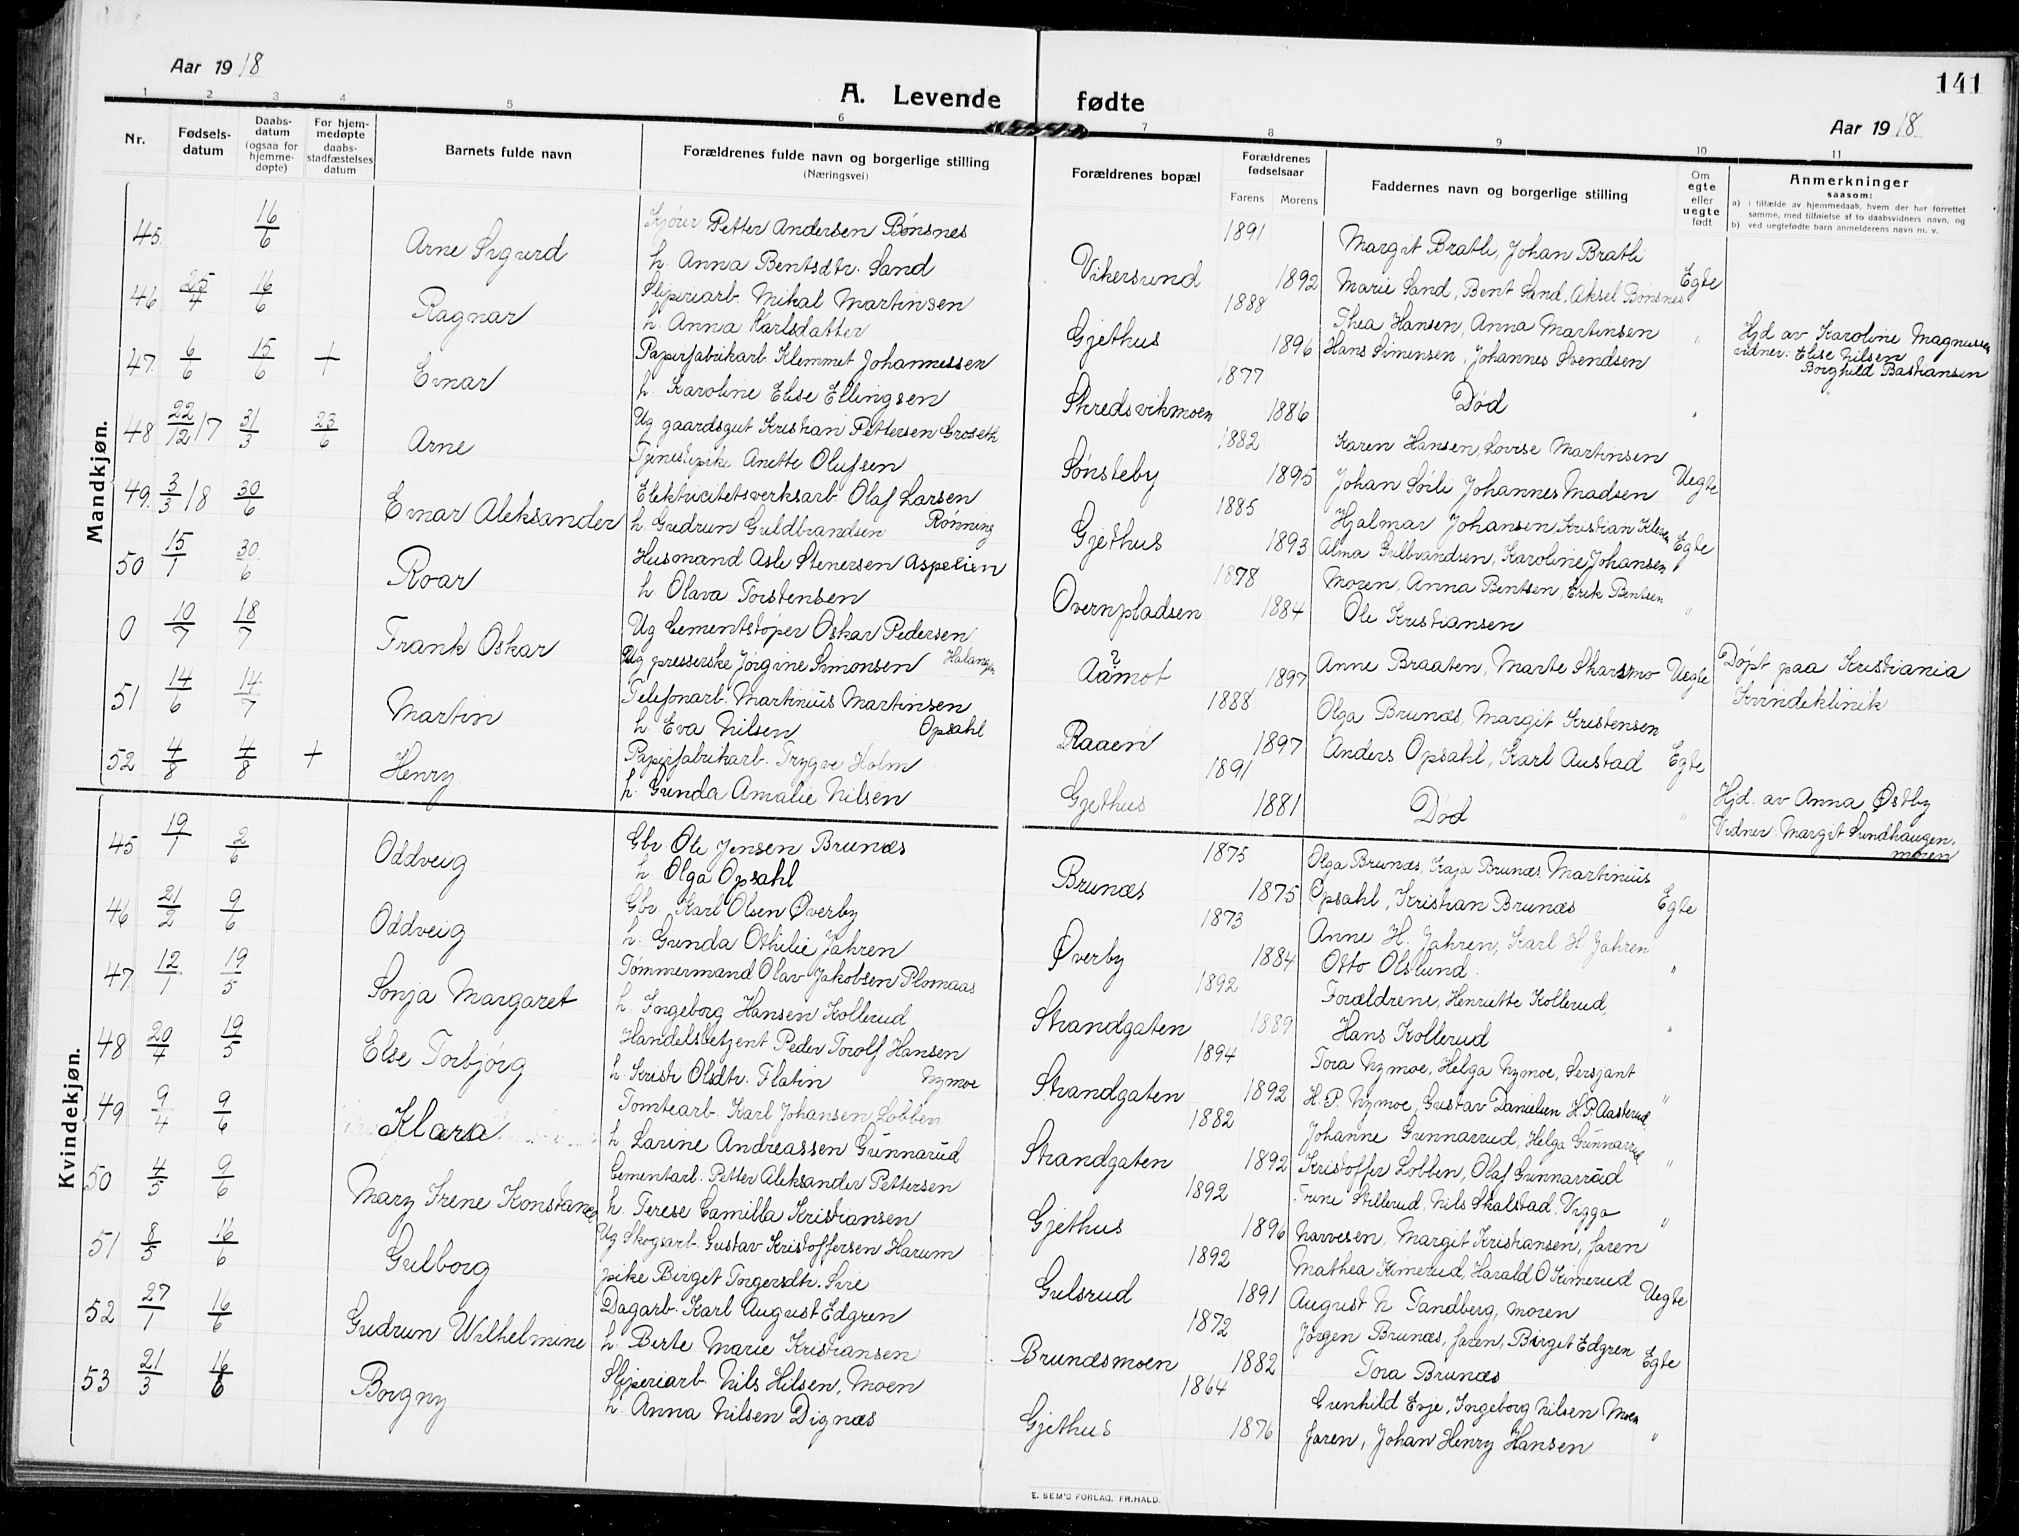 Aar 1918
A. Levende fødte
Aar 1918
141
1 2 3 4 5 6 7 8 9 10 11
Nr.
Fødsels-
datum
Daabs-
datum
(ogsaa for
hjemme-
døpte)
For hjem-
medøpte
daabs-
stadfæstelses
datum
Barnets fulde navn
Forældrenes fulde navn og borgerlige stilling
(Næringsvei)
Forældrenes bopæl
Forældrenes
fødselsaar
Farens Morens
Faddernes navn og borgerlige stilling
Om
egte
eller
uegte
født
Anmerkninger
saasom:
a) i tilfælde av hjemmedaab, hvem der har forrettet
samme, med tilføielse af to daabsvidners navn, og
b) ved uegtefødte barn anmelderens navn m. v.
Mandkjøn.
45 16/6 Arne Sigurd Kjører Petter Andersen Bønsnes 1891 Margit Bratli, Johan Bratli
h. Anna Bentsdtr. Sand Vikersund 1892 Marie Sand, Bent Sand, Aksel Bønsnes Egte
46 25/4 16/6 Ragnar Sliperiarb. Mikal Martinsen 1888 Thea Hansen, Anna Martinsen "
h. Anna Karlsdatter Gjethus 1896 Hans Simensen, Johannes Svendsen
47 6/6 15/6 + Einar Papirfabrikarb. Klemmet Johannessen 1877 Død " Hjd av Karoline Magnussen
h. Karoline Elise Ellingsen Skredsvikmoen 1886 vidner: Elise Nilsen
Borghild Bastiansen
48 22/12 17 31/3 23/6 Arne Ug gaardsgut Kristian Pettersen Groseth 1882 Karen Hansen, Lovise Martinsen
Tjenestepike Anette Olufsen Sønsteby 1895 Johan Sørli Johannes Madsen Uegte
49. 3/3 18 30/6 Einar Aleksander Elektricitetsverksarb Olaf Larsen 1885 Hjalmar Johansen Kristian Kleven
h Gudrun Guldbrandsen Rønning Gjethus 1893 Alma Gulbrandsen, Karoline Johansen Egte
50 15/1 30/6 Roar Husmand Asle Stenersen Aspelien 1878 Moren, Anna Bentsen, Erik Bentsen
h Olava Torstensen Overnpladsen 1884 Ole Kristiansen "
0 10/7 18/7 Frank Oskar Ug Cementstøper Oskar Pedersen
Ug presserske Jørgine Simonsen Aamot 1897 Anne Braaten, Marte Skarsmo Uegte Døpt paa Kristiania
Kvindeklinik
51 14/6 14/7 Martin Telefonarb. Martinius Martinsen 1888 Olga Brunæs, Margit Kristensen
h. Eva Nilsen Opsahl Raaen 1897 Anders Opsahl, Karl Austad Egte
52 4/8 4/8 + Henry Papirfabrikarb. Trygve Holm 1891 Død " Hjd. av Anna Østby
h. Gunda Amalie Nilsen Gjethus 1881 Vidner Margit Sundhaugen.
moren
Kvindekjøn.
45 19/1 2/6 Oddveig Gbr Ole Jensen Brunæs 1875 Olga Brunæs, Kaja Brunæs Martinius
h Olga Opsahl Brunæs 1875 Opsahl, Kristian Brunæs Egte
46 21/2 9/6 Oddveig Gbr. Karl Olsen Øverby 1873 Anne H. Jahren, Karl H Jahren
h. Gunda Othilie Jahren Øverby 1884 Otto Olslund. "
47 12/1 19/5 Sonja Margaret Tømmermand Olav Jakobsen Plomaas 1892 Forældrene, Henriette Kollerud,
h. Ingeborg Hansen Kollerud Strandgaten 1889 Hans Kollerud "
48 20/4 19/5 Else Torbjørg Handelsbetjent Peder Torolf Hansen 1894 Tora Nymoe, Helga Nymoe, Sersjant
h. Kristi Olsdtr. Flatin Nymoe Strandgaten 1892 H.P. Nymoe, Gustav Danielsen H.P. Aasterud "
49 9/4 9/6 Klara Tomtearb. Karl Johansen Lobben 1882 Johanne Gunnarrud, Helga Gunnarrud
h. Larine Andreassen Gunnarud Strandgaten 1892 Kristoffer Lobben, Olaf Gunnarrud "
50 4/5 9/6 Mary Irene Konstance Cementarb. Petter Aleksander Pettersen 1892 Trine Stillerud, Nils Skalstad, Viggo
h. Terese Camilla Kristiansen Gjethus 1896 Narvesen, Margit Kristiansen, faren "
51 8/5 16/6 Gulborg Ug Skogsarb. Gustav Kristoffersen Harum 1892 Mathea Kimerud, Harald O Kimerud
pike Birgit Torgersdtr. Svie Gulsrud 1891 August N Tandberg, moren Uegte
52 27/1 16/6 Gudrun Wilhelmine Dagarb. Karl August Edgren 1872 Jørgen Brunæs, faren, Birgit Edgren
h. Berte Marie Kristiansen Brunæsmoen 1882 Tora Brunæs Egte
53 21/3 16/6 Borgny Sliperiarb. Nils Hilsen, Moen 1864 Gunhild Evje, Ingeborg Nilsen Moen
h. Anna Nilsen Dignæs Gjethus 1876 faren, Johan Henry Hansen "
E. SEM'S FORLAG, FR.HALD.